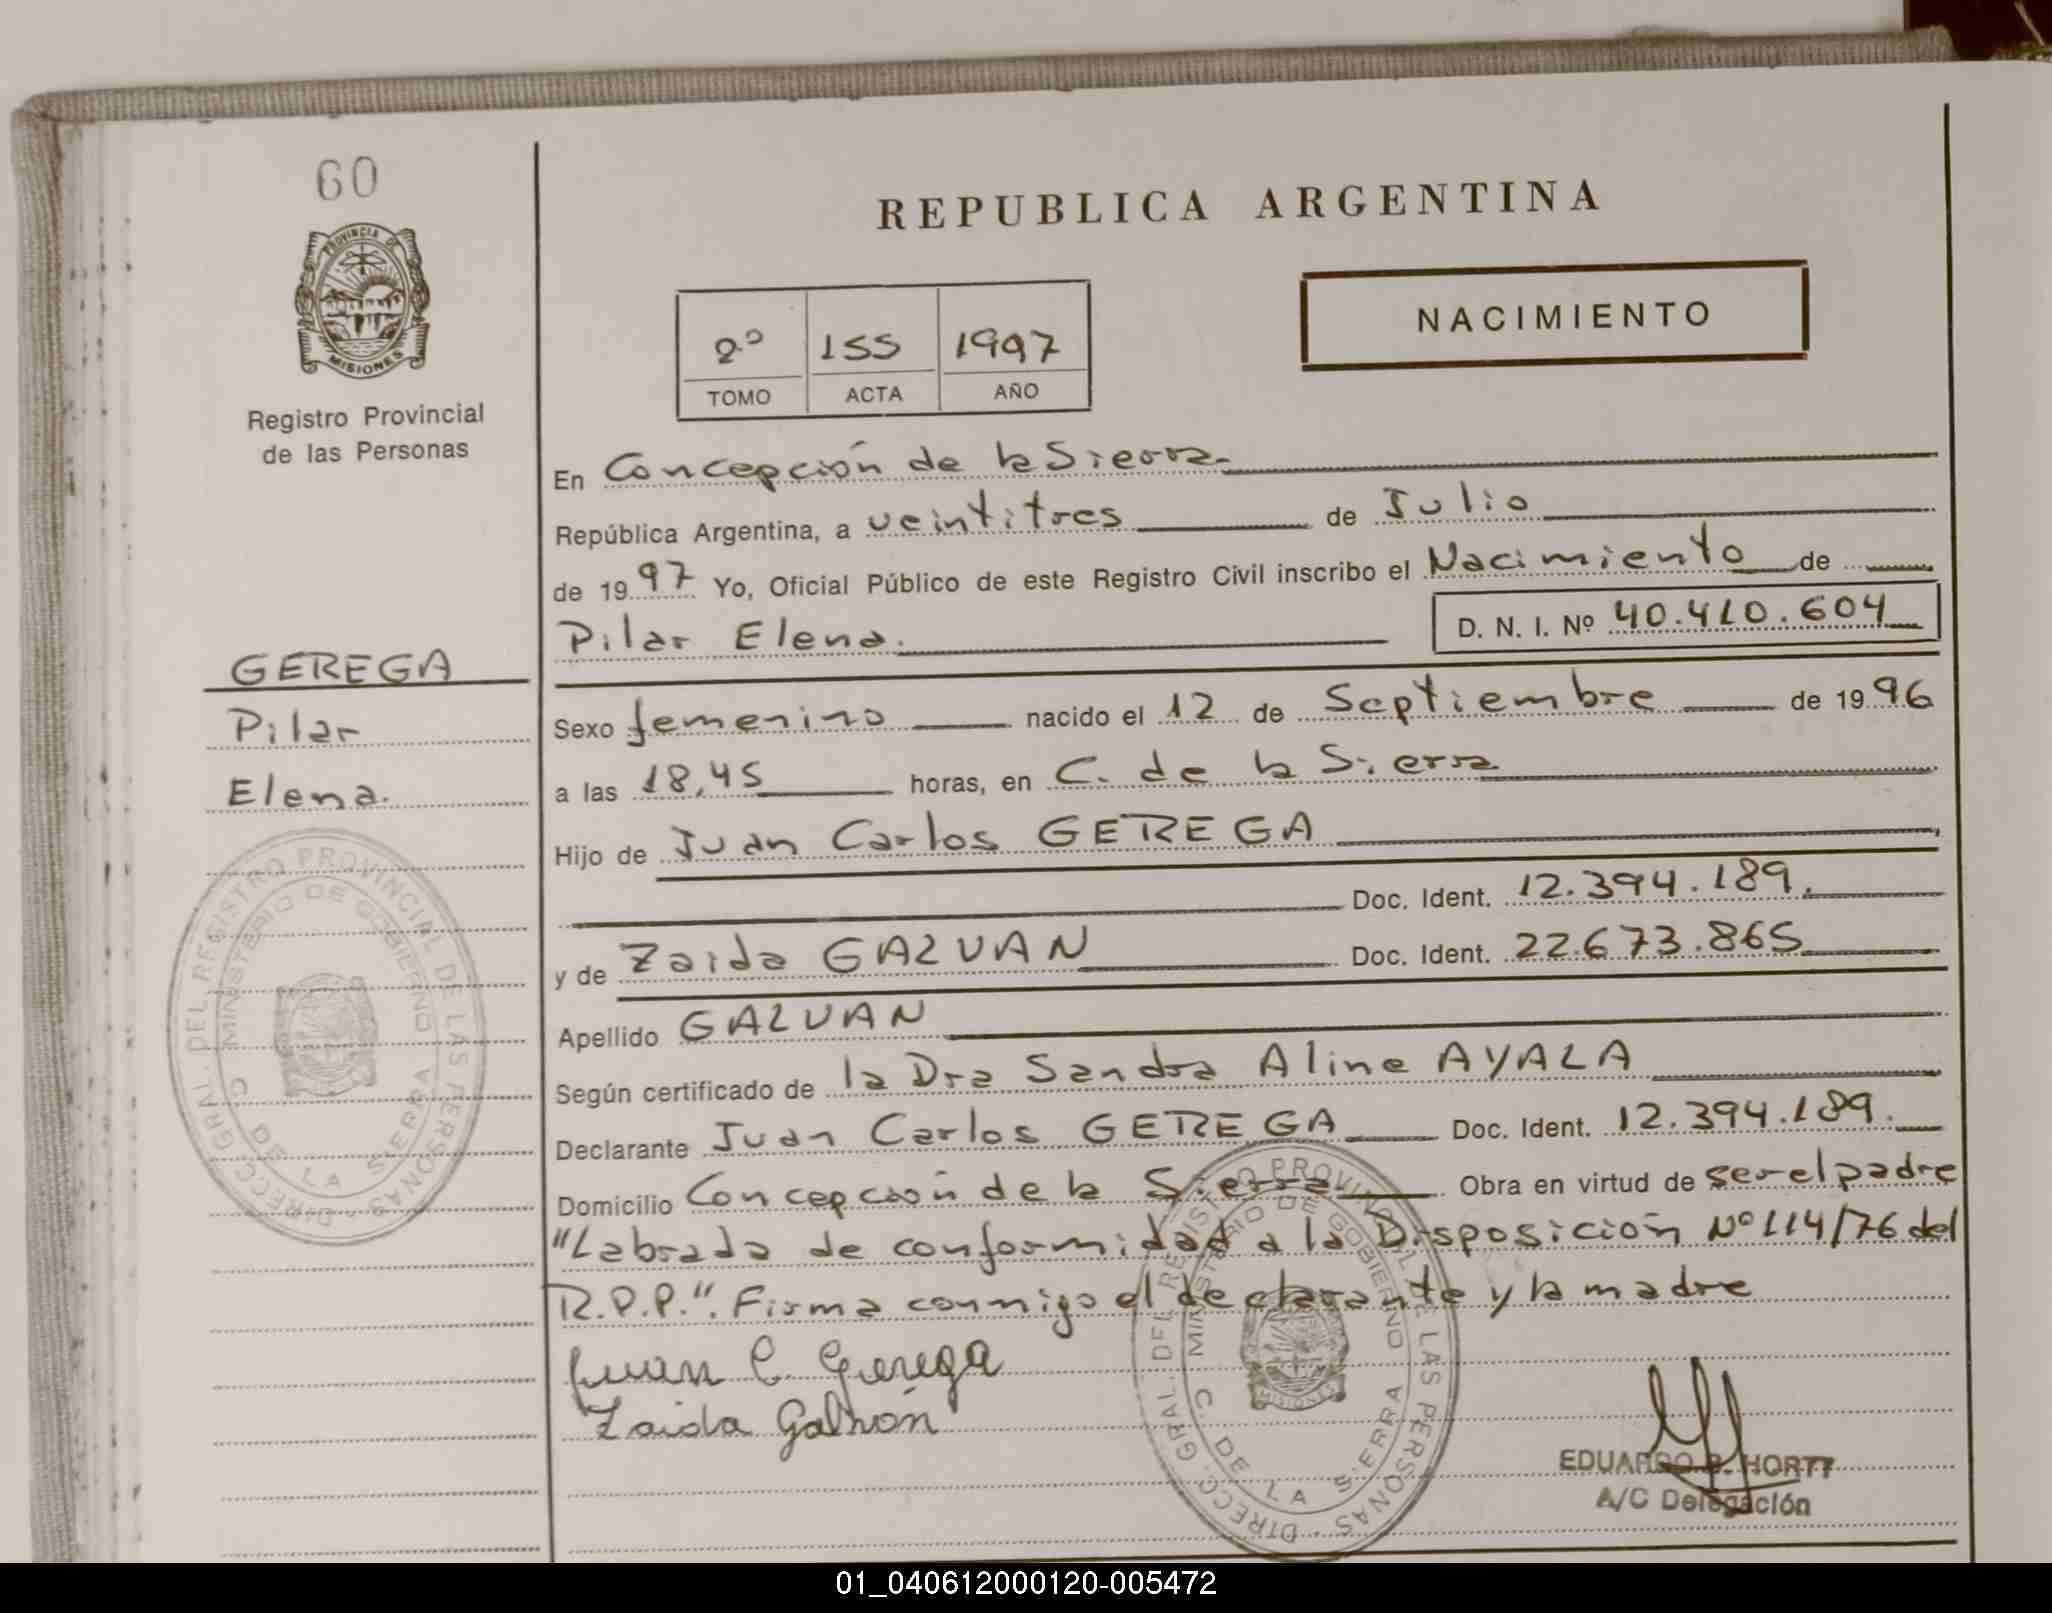 60
PROVINCIA DE
MISIONES
Registro Provincial
de las Personas
GEREGA
Pilar
Elena.
DIRECC. GRAL. DEL REGISTRO PROVINCIAL DE LAS PERSONAS
MINISTERIO DE GOBIERNO
C. DE LA SIERRA
REPUBLICA ARGENTINA
2º 155 1997
TOMO ACTA AÑO
NACIMIENTO
En Concepción de la Sierra.
República Argentina, a veintitres de Julio
de 1997 Yo, Oficial Público de este Registro Civil inscribo el Nacimiento de
Pilar Elena. D. N. I. Nº 40.410.604
Sexo femenino nacido el 12 de Septiembre de 1996
a las 18,45 horas, en C. de la Sierra
Hijo de Juan Carlos GEREGA
Doc. Ident. 12.394.189.
y de Zaida GALVAN Doc. Ident. 22.673.865
Apellido GALVAN
Según certificado de la Dra Sandra Aline AYALA
Declarante Juan Carlos GEREGA Doc. Ident. 12.394.189.
Domicilio Concepción de la Sierra Obra en virtud de ser el padre
"Labrada de conformidad a la Disposición Nº 114/76 del
R.P.P.". Firma conmigo el declarante y la madre
Juan C. Gerega
Zaida Galván
DIRECC. GRAL. DEL REGISTRO PROVINCIAL DE LAS PERSONAS
MINISTERIO DE GOBIERNO
C. DE LA SIERRA
MISIONES
EDUARDO R. HORTT
A/C Delegación
01_040612000120-005472